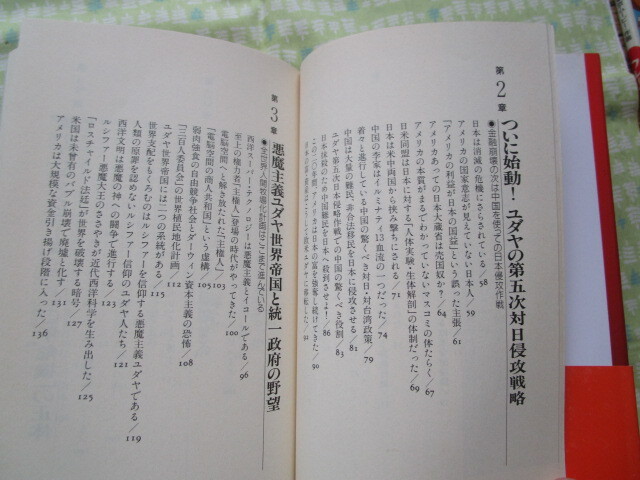 第2章 ついに始動!ユダヤの第五次対日侵攻戦略
●金融崩壊の次は中国を使っての日本侵攻作戦
日本は消滅の危機にさらされている/58
アメリカの国家意志が見えていない日本人/59
「アメリカの利益が日本の国益」という誤った主張/61
アメリカあっての日本大蔵省は売国奴か?/64
アメリカの本質がまるでわかっていないマスコミの体たらく/67
日米同盟は日本に対する「人体実験・生体解剖」の体制だった/69
日本は米中両国から挟み撃ちにされる/71
中国の李家はイルミナティ13血流の一つだった/74
着々と進行している中国の驚くべき対日・対台湾政策/79
中国は大量の難民、非合法移民を日本に侵攻させる/81
ユダヤ第五次日本侵略作戦での中国の驚くべき役割/83
日本抹殺のため中国難民を日本へ殺到させよ!/86
この二〇年間、アメリカは日本の富を強奪し続けてきた/90
第3章 悪魔主義ユダヤ世界帝国と統一政府の野望
西洋スーパーテクノロジーは悪魔主義とイコールである/96
至上の権力者「主権人」登場の時代がやってきた/100
電脳空間へと解き放たれた「主権人」/103
「電脳空間の商人共和国」という虚構/105
弱肉強食の自由競争社会とダーウィン資本主義の恐怖/108
「三百人委員会」の世界植民地化計画/112
ユダヤ世界帝国には二つの系統がある/115
世界支配をもくろむのはルシファーを信仰する悪魔主義ユダヤである/119
人類の原罪を認めないルシファー信仰のユダヤ人たち/121
西洋文明は悪魔の神への闘争で進行する/123
ルシファー悪魔大王のささやきが近代西洋科学を生み出した/125
「ロスチャイルド法廷」が世界を破壊する暗号/127
米国は未曾有のバブル崩壊で廃墟と化す/131
アメリカは大規模な資金引き揚げ段階に入った/136